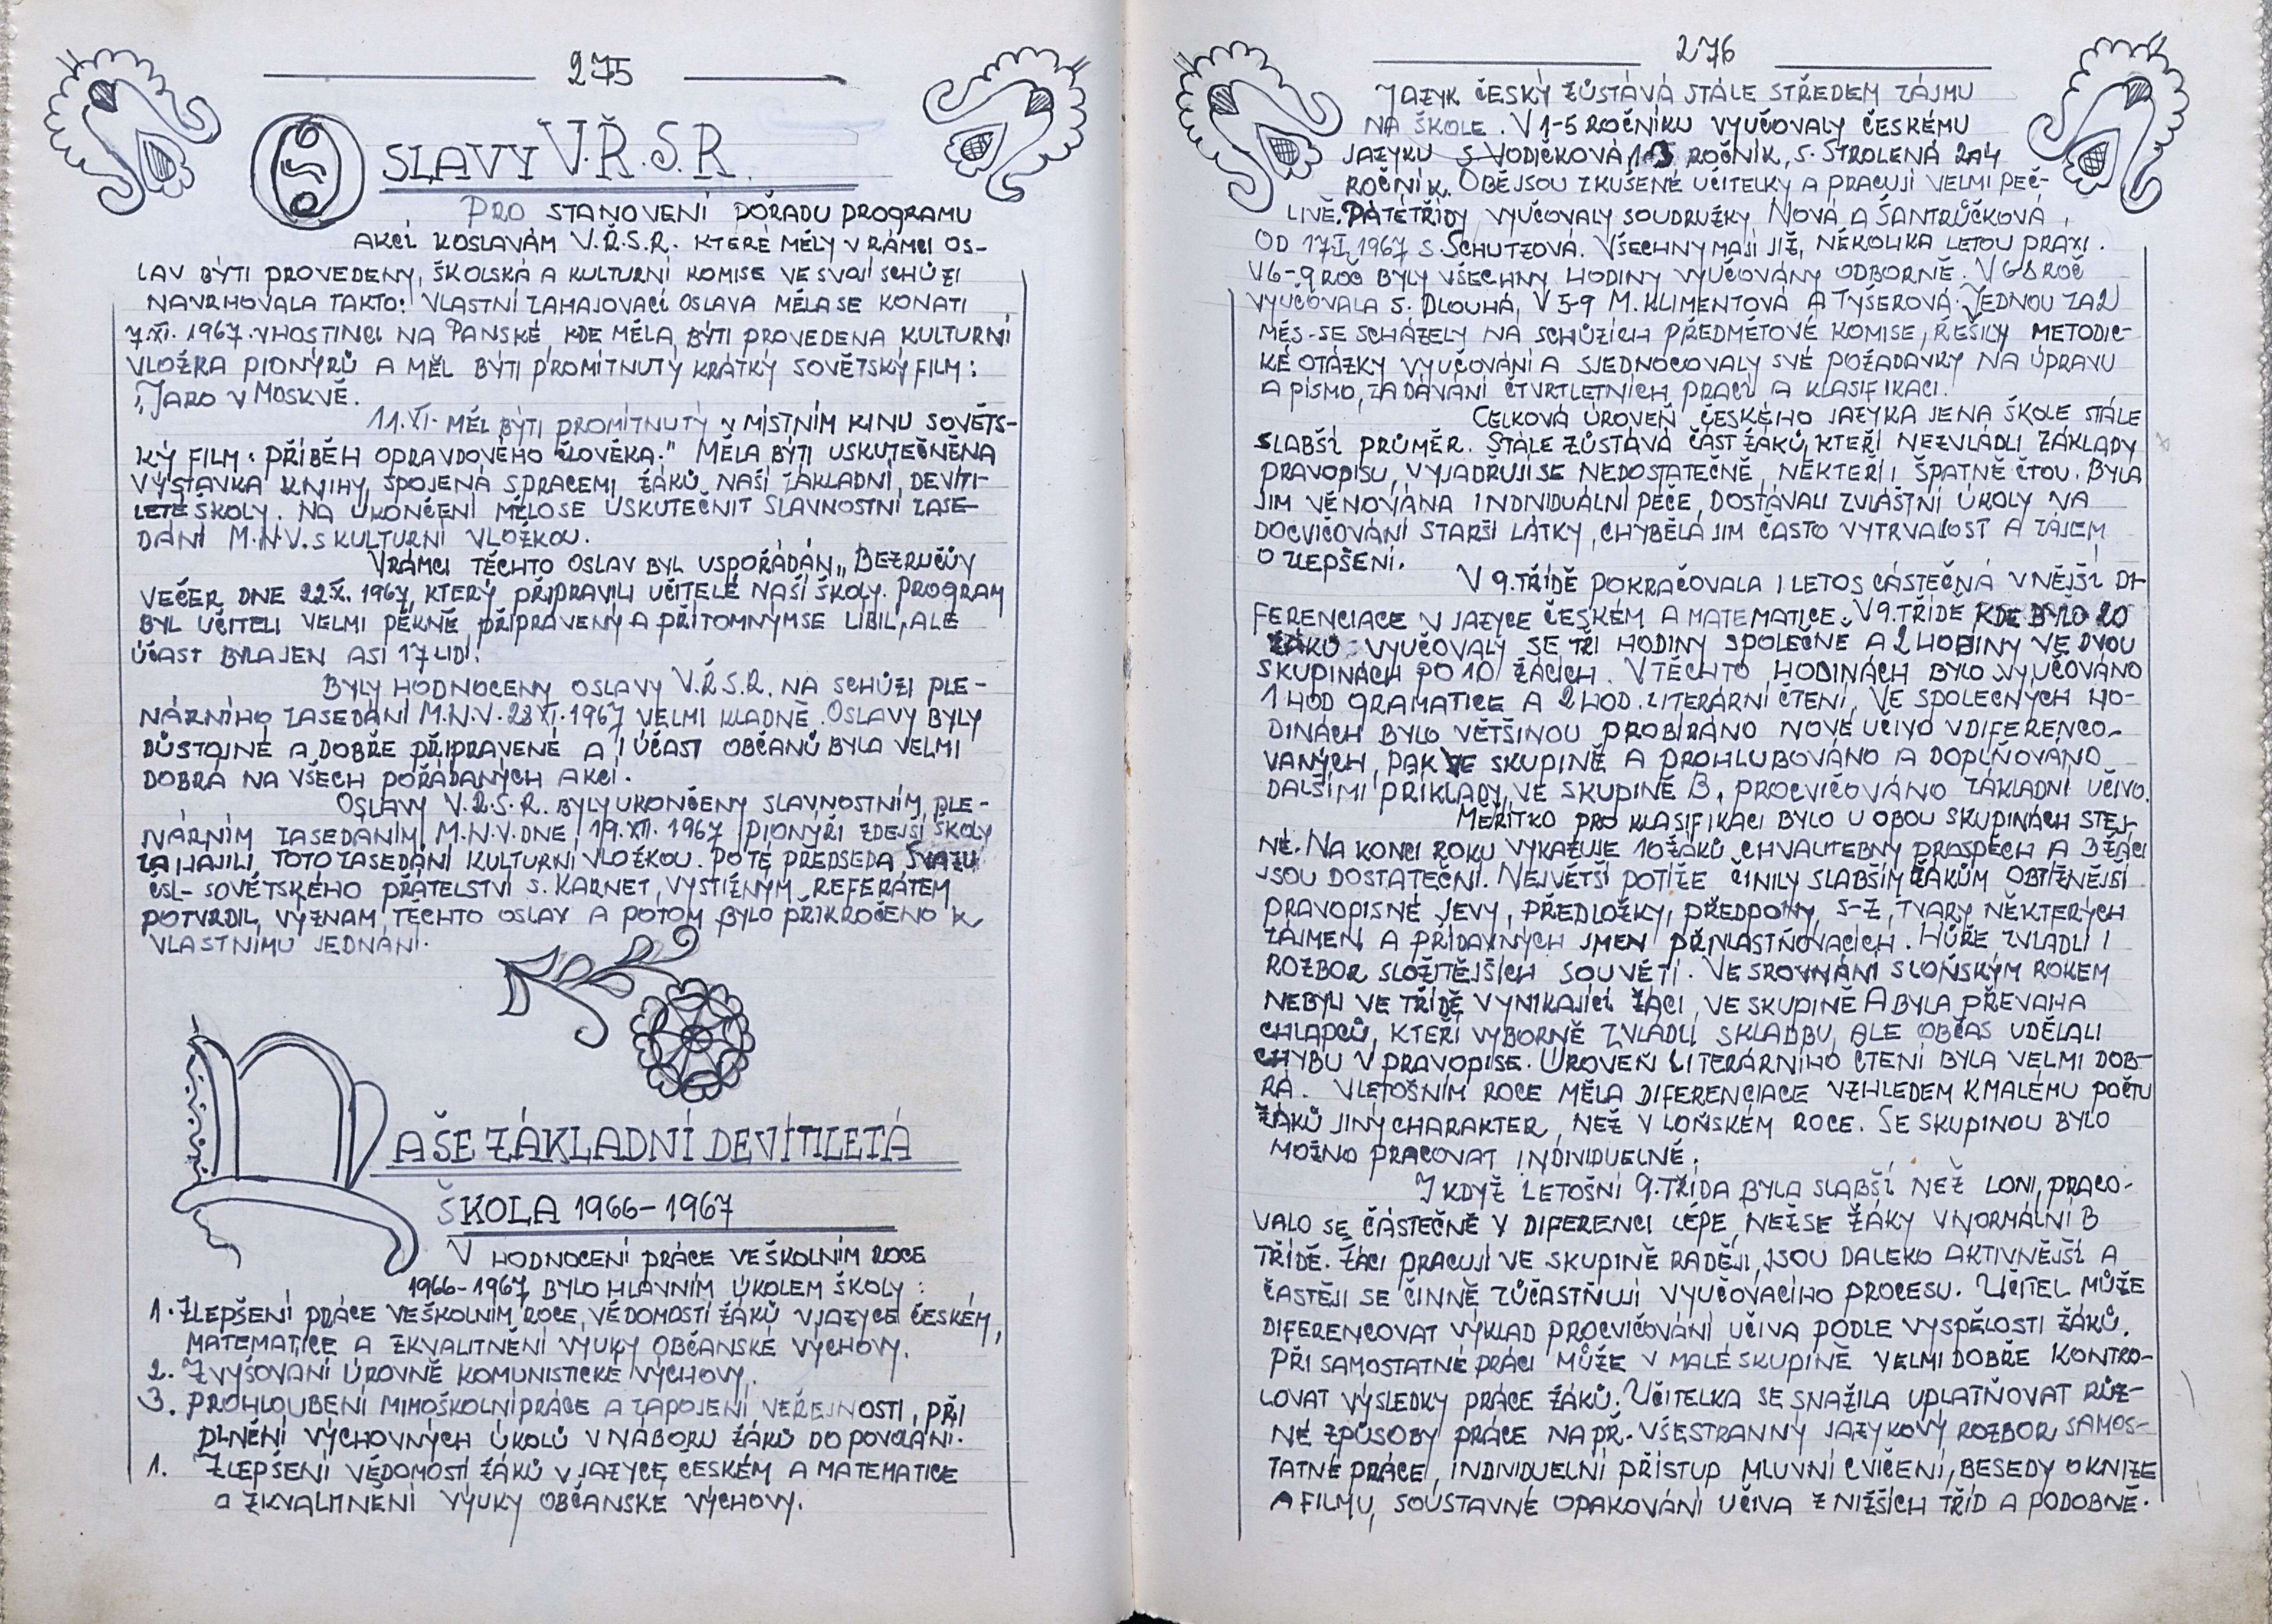 275
OSLAVY V.Ř.S.R.
PRO STANOVENÍ POŘADU PROGRAMU
AKCÍ KOSLAVÁM V.Ř.S.R. KTERÉ MĚLY V RÁMCI OS-
LAV BÝTI PROVEDENY, ŠKOLSKÁ A KULTURNÍ KOMISE VE SVOJÍ SCHŮZI
NAVRHOVALA TAKTO: VLASTNÍ ZAHAJOVACÍ OSLAVA MĚLA SE KONATI
7.XI. 1967. VHOSTINCI NA PANSKÉ, KDE MĚLA BÝTI PROVEDENA KULTURNÍ
VLOŽKA PIONÝRŮ A MĚL BÝTI PROMÍTNUTÝ KRÁTKÝ SOVĚTSKÝ FILM:
„JARO V MOSKVĚ.
11.XI. MĚL BÝTI PROMÍTNUTÝ V MÍSTNÍM KINU SOVĚTS-
KÝ FILM: PŘÍBĚH OPRAVDOVÉHO ČLOVĚKA." MĚLA BÝTI USKUTEČNĚNA
VÝSTAVKA KNIHY, SPOJENÁ SPRACEMI ŽÁKŮ NAŠÍ ZÁKLADNÍ DEVÍTI-
LETÉ ŠKOLY. NA UKONČENÍ MĚLO SE USKUTEČNIT SLAVNOSTNÍ ZASE-
DÁNÍ M.N.V. S KULTURNÍ VLOŽKOU.
VRÁMCI TĚCHTO OSLAV BYL USPOŘÁDÁN „BEZRUČŮV
VEČER DNE 22.X. 1967, KTERÝ PŘIPRAVILI UČITELÉ NAŠÍ ŠKOLY. PROGRAM
BYL UČITELI VELMI PĚKNĚ PŘIPRAVENÝ A PŘÍTOMNÝMSE LÍBIL, ALE
ÚČAST BYLAJEN ASI 17 LIDÍ.
BYLY HODNOCENY OSLAVY V.Ř.S.R. NA SCHŮZI PLE-
NÁRNÍHO ZASEDÁNÍ M.N.V. 28 XI. 1967 VELMI KLADNĚ. OSLAVY BYLY
DŮSTOJNÉ A DOBŘE PŘIPRAVENÉ A I ÚČAST OBČANŮ BYLA VELMI
DOBRÁ NA VŠECH POŘÁDANÝCH AKCÍ.
OSLAVY V.Ř.S.R. BYLY UKONČENY SLAVNOSTNÍM PLE-
NÁRNÍM ZASEDÁNÍM M.N.V. DNE 19.XII. 1967 PIONÝŘI ZDEJŠÍ ŠKOLY
ZAHÁJILI TOTO ZASEDÁNÍ KULTURNÍ VLOŽKOU. POTÉ PŘEDSEDA SVAZU
ČSL- SOVĚTSKÉHO PŘÁTELSTVÍ S. KARNET, VYSTIŽNÝM REFERÁTEM
POTVRDIL VÝZNAM TĚCHTO OSLAV A POTOM BYLO PŘIKROČENO K
VLASTNÍMU JEDNÁNÍ.
NAŠE ZÁKLADNÍ DEVÍTILETÁ
ŠKOLA 1966-1967
V HODNOCENÍ PRÁCE VE ŠKOLNÍM ROCE
1966-1967 BYLO HLAVNÍM ÚKOLEM ŠKOLY:
1. ZLEPŠENÍ PRÁCE VE ŠKOLNÍM ROCE, VĚDOMOSTÍ ŽÁKŮ V JAZYCE ČESKÉM,
MATEMATICE A ZKVALITNĚNÍ VÝUKY OBČANSKÉ VÝCHOVY.
2. ZVYŠOVANÍ ÚROVNĚ KOMUNISTICKÉ VÝCHOVY.
3. PROHLOUBENÍ MIMOŠKOLNÍ PRÁCE A ZAPOJENÍ VEŘEJNOSTI, PŘI
PLNĚNÍ VÝCHOVNÝCH ÚKOLŮ V NÁBORU ŽÁKŮ DO POVOLÁNÍ.
1. ZLEPŠENÍ VĚDOMOSTÍ ŽÁKŮ V JAZYCE ČESKÉM A MATEMATICE
A ZKVALITNĚNÍ VÝUKY OBČANSKÉ VÝCHOVY.
276
JAZYK ČESKÝ ZŮSTÁVÁ STÁLE STŘEDEM ZÁJMU
NA ŠKOLE. V 1-5 ROČNÍKU VYUČOVALY ČESKÉMU
JAZYKU S. VODIČKOVÁ ROČNÍK, S. STROLENÁ 2A4
ROČNÍK. OBĚ JSOU ZKUŠENÉ UČITELKY A PRACUJÍ VELMI PEČ-
LIVĚ. PÁTÉ TŘÍDY VYUČOVALY SOUDRUŽKY NOVÁ A ŠANTRŮČKOVÁ,
OD 17.I. 1967 S. SCHUTZOVÁ. VŠECHNY MAJÍ JIŽ, NĚKOLIKA LETOU PRAXI.
V 6-9 ROČ BYLY VŠECHNY HODINY VYUČOVÁNY ODBORNĚ. V 6 8 ROČ
VYUČOVALA S. DLOUHÁ, V 5-9 M. KLIMENTOVÁ A TÝŠEROVÁ. JEDNOU ZA 2
MĚS-SE SCHÁZELY NA SCHŮZÍCH PŘEDMĚTOVÉ KOMISE, ŘEŠILY METODIC-
KÉ OTÁZKY VYUČOVÁNÍ A SJEDNOCOVALY SVÉ POŽADAVKY NA ÚPRAVU
A PÍSMO, ZADÁVÁNÍ ČTVRTLETNÍCH PRACÍ A KLASIFIKACI.
CELKOVÁ ÚROVEŇ ČESKÉHO JAZYKA JE NA ŠKOLE STÁLE
SLABŠÍ PRŮMĚR. STÁLE ZŮSTÁVÁ ČÁST ŽÁKŮ, KTEŘÍ NEZVLÁDLI ZÁKLADY
PRAVOPISU, VYJADŘUJÍ SE NEDOSTATEČNĚ, NĚKTEŘÍ I ŠPATNĚ ČTOU. BYLA
JIM VĚNOVÁNA INDIVIDUÁLNÍ PÉČE, DOSTÁVALI ZVLÁŠTNÍ ÚKOLY NA
DOCVIČOVÁNÍ STARŠÍ LÁTKY, CHYBĚLA JIM ČASTO VYTRVALOST A ZÁJEM
O ZLEPŠENÍ.
V 9. TŘÍDĚ POKRAČOVALA I LETOS ČÁSTEČNÁ VNĚJŠÍ DI-
FERENCIACE V JAZYCE ČESKÉM A MATEMATICE. V 9. TŘÍDĚ KDE BYLO 20
ŽÁKŮ VYUČOVALY SE TŘI HODINY SPOLEČNĚ A 2 HODINY VE DVOU
SKUPINÁCH PO 10 ŽÁCÍCH. V TĚCHTO HODINÁCH BYLO VYUČOVÁNO
1 HOD GRAMATICE A 2 HOD. LITERÁRNÍ ČTENÍ, VE SPOLEČNÝCH HO-
DINÁCH BYLO VĚTŠINOU PROBÍRÁNO NOVÉ UČIVO V DIFERENCO-
VANÝCH, PAK VE SKUPINĚ A PROHLUBOVÁNO A DOPLŇOVÁNO
DALŠÍMI PŘÍKLADY, VE SKUPINĚ B, PROCVIČOVÁNO ZÁKLADNÍ UČIVO.
MĚŘÍTKO PRO KLASIFIKACI BYLO U OBOU SKUPINÁCH STEJ-
NÉ. NA KONCI ROKU VYKAZUJE 10 ŽÁKŮ CHVALITEBNÝ PROSPĚCH A 3 ŽÁCI
JSOU DOSTATEČNÍ. NEJVĚTŠÍ POTÍŽE ČINILY SLABŠÍM ŽÁKŮM OBTÍŽNĚJŠÍ
PRAVOPISNÉ JEVY, PŘEDLOŽKY, PŘEDPONY, S-Z, TVARY NĚKTERÝCH
ZÁJMEN A PŘÍDAVNÝCH JMEN PŘIVLASTŇOVACÍCH. HŮŘE ZVLÁDLI I
ROZBOR SLOŽITĚJŠÍCH SOUVĚTÍ. VE SROVNÁNÍ SLOŇSKÝM ROKEM
NEBYLI VE TŘÍDĚ VYNIKAJÍCÍ ŽÁCI, VE SKUPINĚ A BYLA PŘEVAHA
CHLAPCŮ, KTEŘÍ VÝBORNĚ ZVLÁDLI SKLADBU, ALE OBČAS UDĚLALI
CHYBU V PRAVOPISE. ÚROVEŇ LITERÁRNÍHO ČTENÍ BYLA VELMI DOB-
RÁ. VLETOŠNÍM ROCE MĚLA DIFERENCIACE VZHLEDEM K MALÉMU POČTU
ŽÁKŮ JINÝ CHARAKTER, NEŽ V LOŇSKÉM ROCE. SE SKUPINOU BYLO
MOŽNO PRACOVAT INDIVIDUELNĚ.
I KDYŽ LETOŠNÍ 9. TŘÍDA BYLA SLABŠÍ NEŽ LONI, PRACO-
VALO SE ČÁSTEČNĚ V DIFERENCI LÉPE, NEŽSE ŽÁKY V NORMÁLNÍ B
TŘÍDĚ. ŽÁCI PRACUJÍ VE SKUPINĚ RADĚJI, JSOU DALEKO AKTIVNĚJŠÍ A
ČASTĚJI SE ČINNĚ ZÚČASTŇUJÍ VYUČOVACÍHO PROCESU. UČITEL MŮŽE
DIFERENCOVAT VÝKLAD PROCVIČOVÁNÍ UČIVA PODLE VYSPĚLOSTI ŽÁKŮ.
PŘI SAMOSTATNÉ PRÁCI MŮŽE V MALÉ SKUPINĚ VELMI DOBŘE KONTRO-
LOVAT VÝSLEDKY PRÁCE ŽÁKŮ. UČITELKA SE SNAŽILA UPLATŇOVAT RŮZ-
NÉ ZPŮSOBY PRÁCE NAPŘ. VŠESTRANNÝ JAZYKOVÝ ROZBOR, SAMOS-
TATNÉ PRÁCE, INDIVIDUELNÍ PŘÍSTUP MLUVNÍ CVIČENÍ, BESEDY O KNIZE
A FILMU, SOUSTAVNÉ OPAKOVÁNÍ UČIVA Z NIŽŠÍCH TŘÍD A PODOBNĚ.